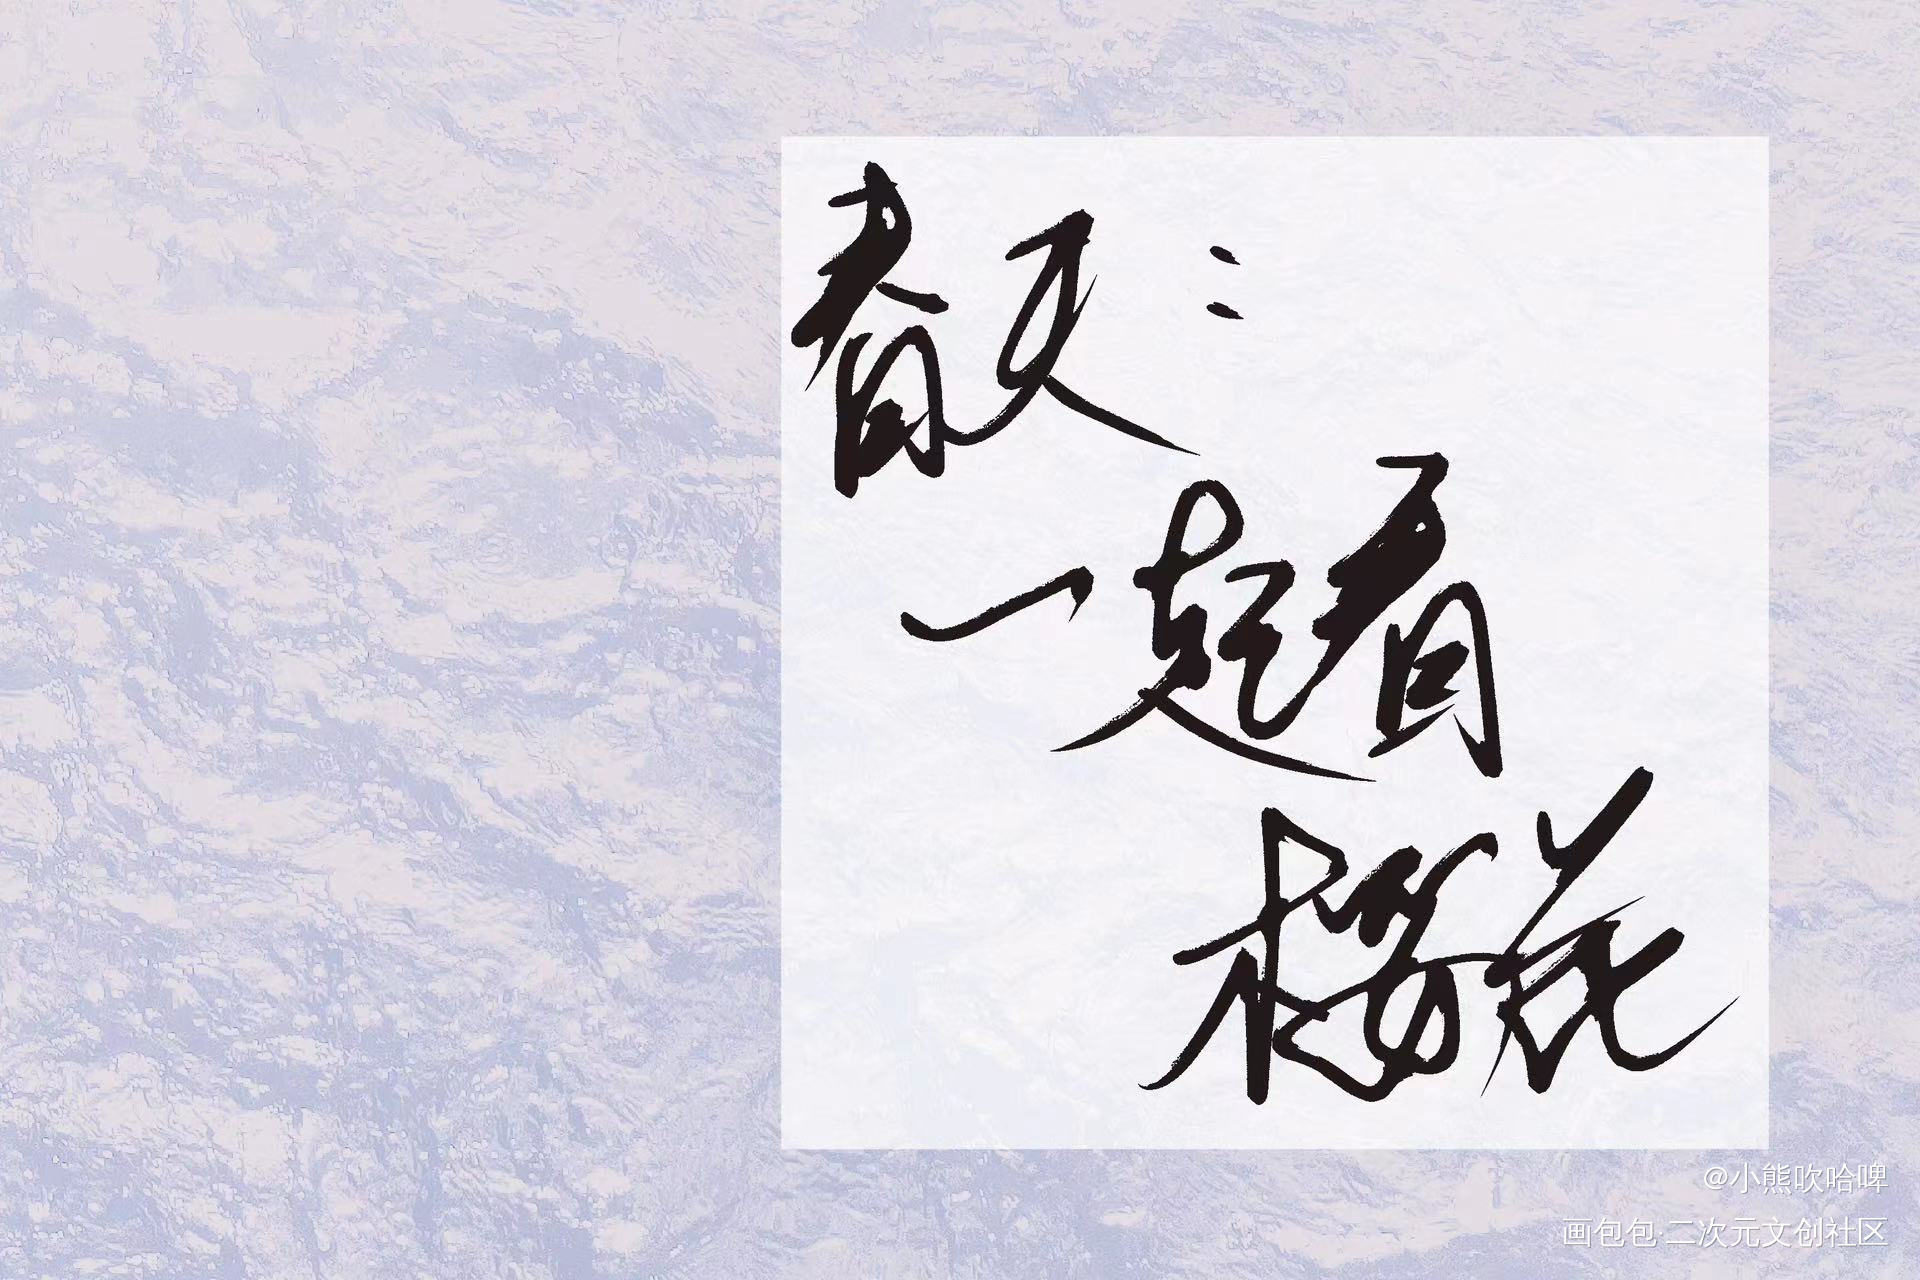 春天：
一起看
樱花
@小熊吹哈啤
画包包·二次元文创社区